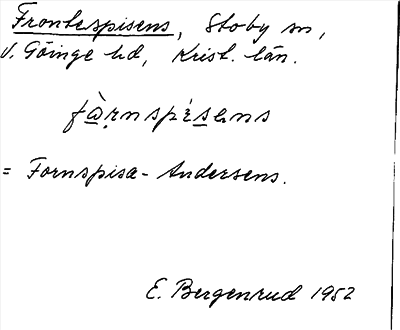 Frontespisens, Stoby sn,
V. Göinge hd, Krist. län.
fà̱ṛnspi̍s̱ens
= Fornspisa-Andersens.
E. Bergenrud 1952